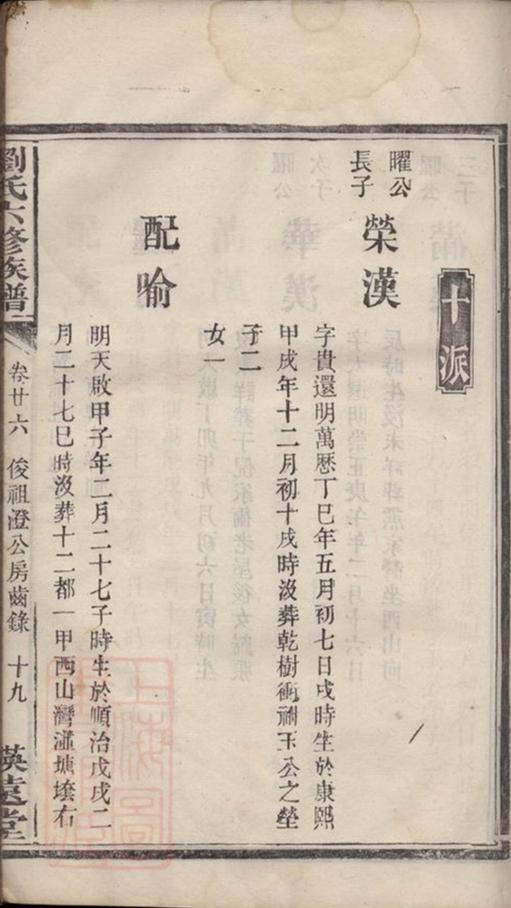 十派
曜公
長子
榮漢
字貴還明萬歷丁巳年五月初七日戌時生於康熙
甲戌年十二月初十戌時沒葬乾樹衝禰玉公之塋
子二
女一
配喻
明天啟甲子年二月二十七子時生於順治戊戌二
月二十七巳時沒葬十二都一甲西山灣瀟塘塝右
劉氏六修族譜
卷廿六 俊祖澄公房齒錄 十九
遠堂
上海圖